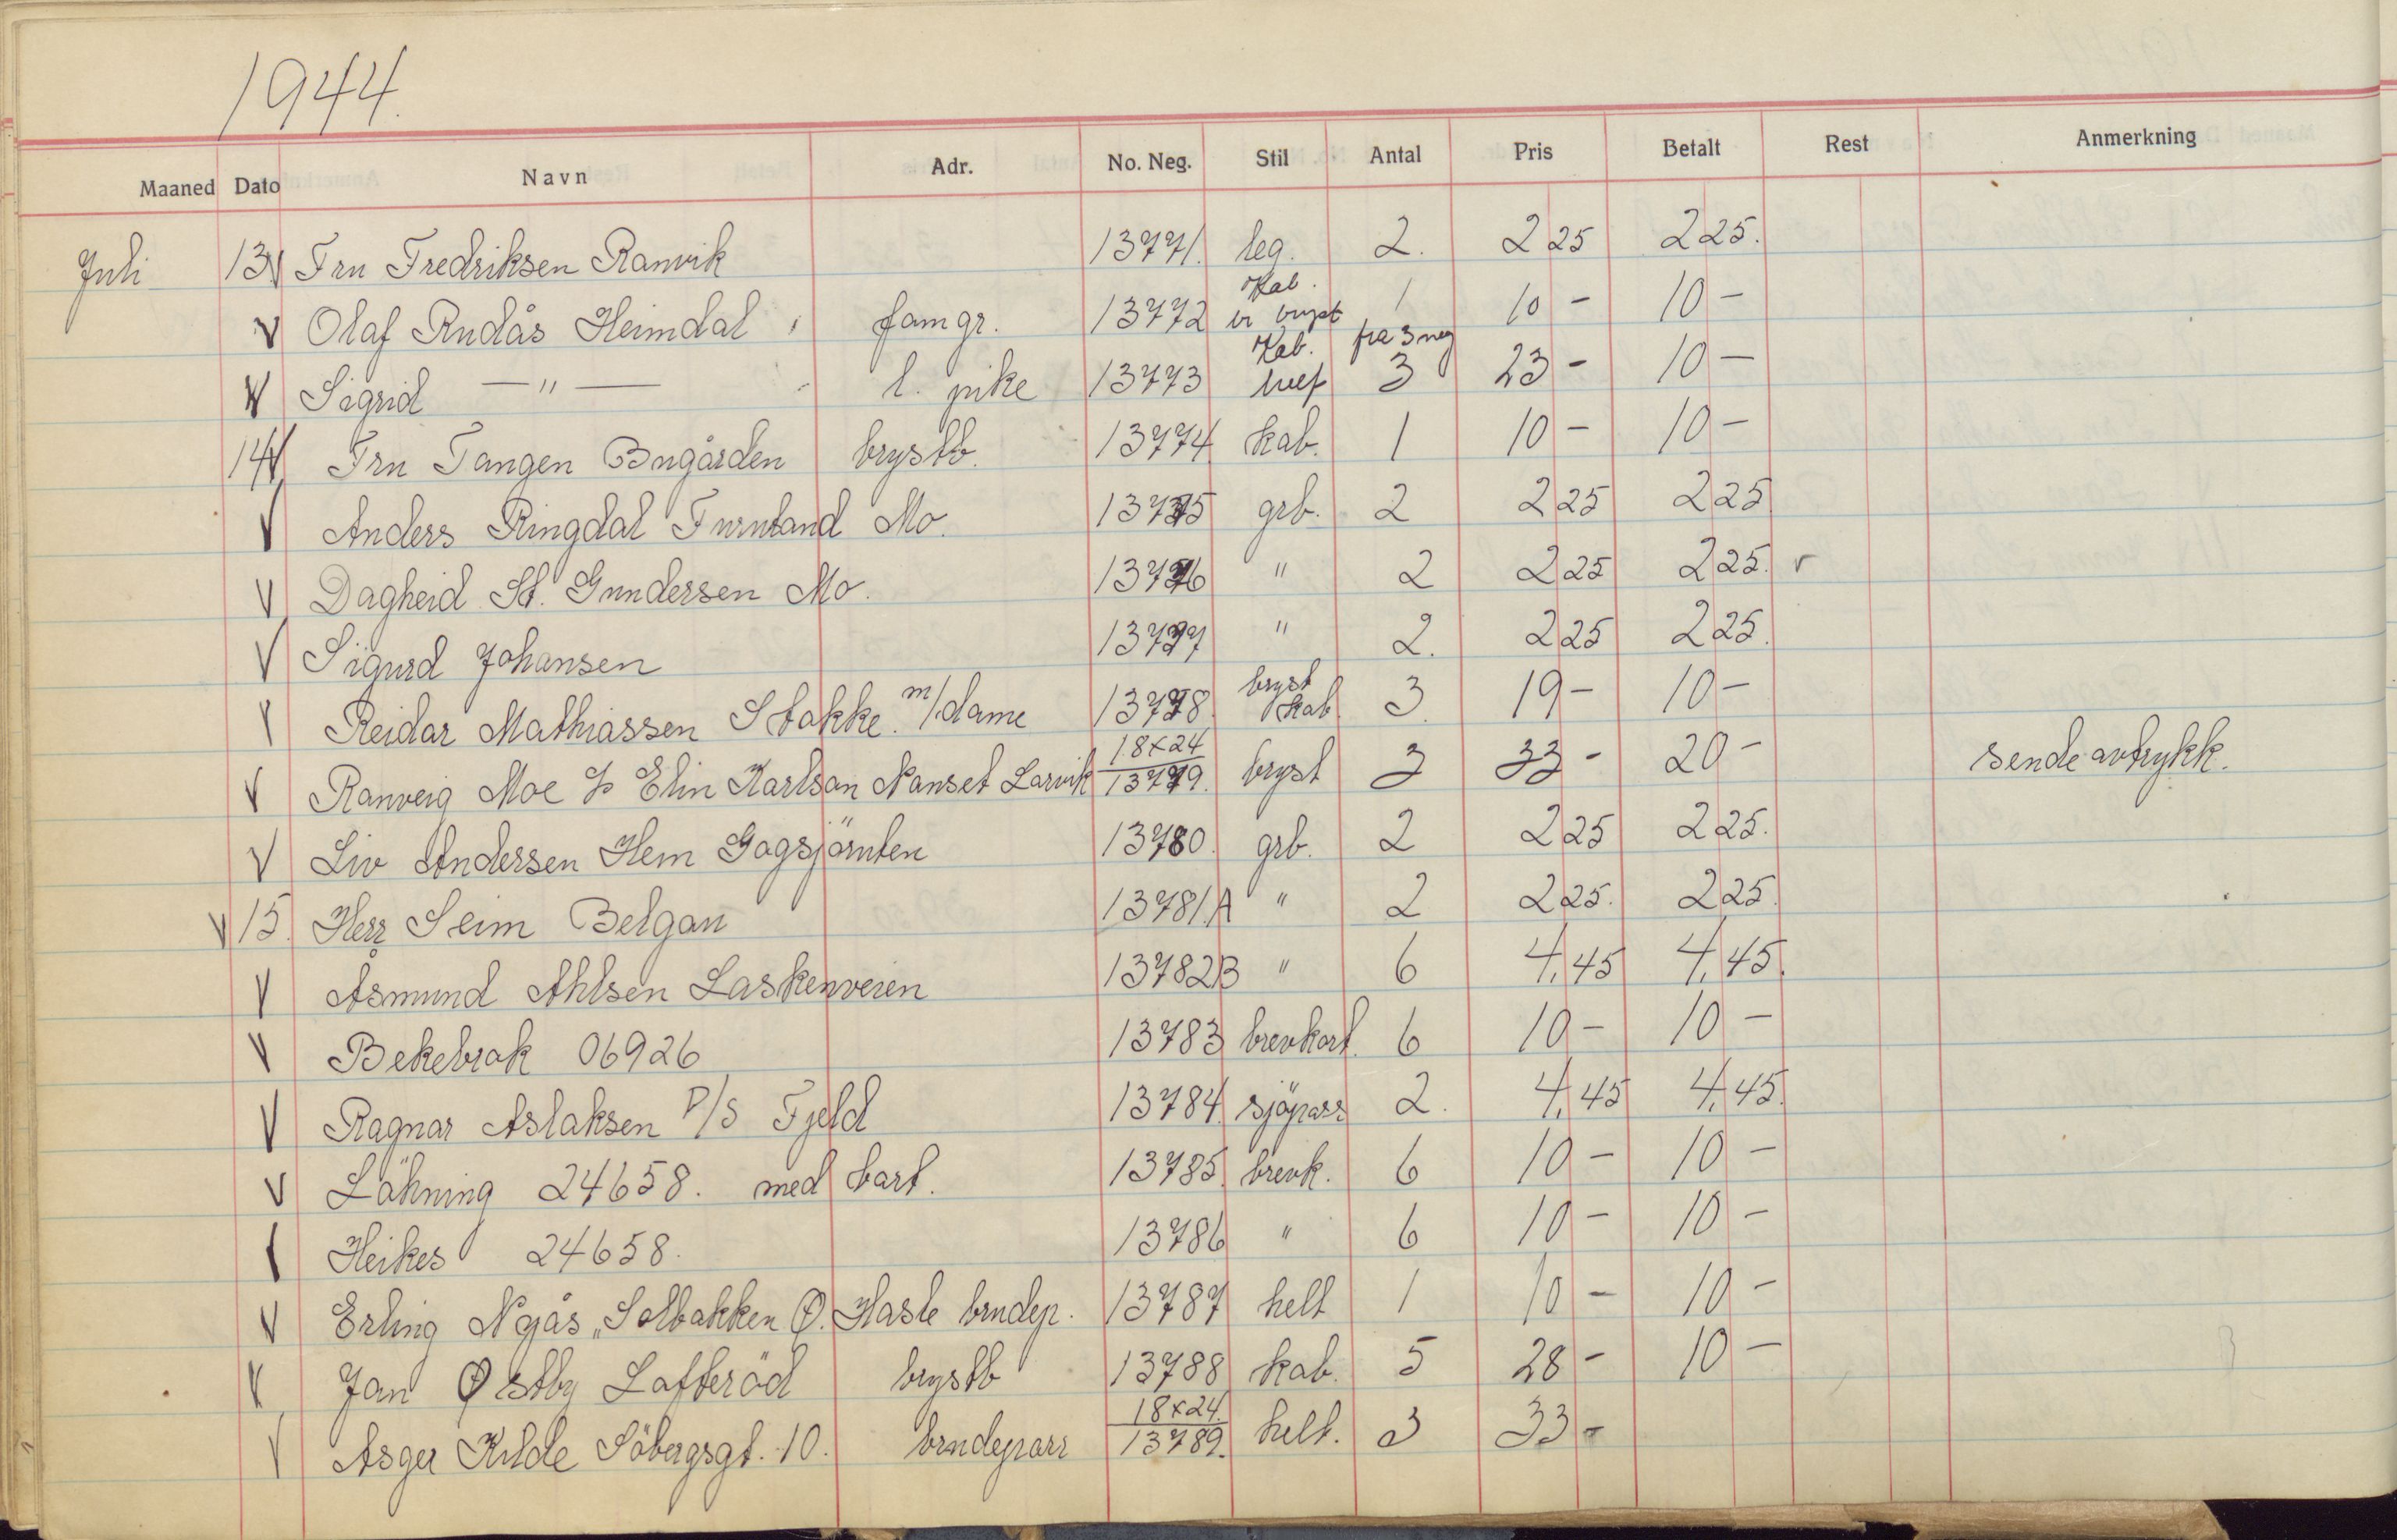 1944.
Maaned Dato Navn Adr. No. Neg. Stil Antal Pris Betalt Rest Anmerkning
Juli 13 V Fru Fredriksen Ranvik 13771. leg. 2. 2 25 2 25.
V Olaf Rudås Heimdal famgr. 13772 Kab. bryst 1 10 - 10 -
V Sigrid —"— l. pike 13773 Kab. fra 3 neg 3 23 - 10 -
14 V Fru Tangen Bugården brystb. 13774 kab. 1 10 - 10 -
V Anders Ringdal Furuland Mo. 13775 grb. 2 2 25 2 25
V Dagheid St. Gundersen Mo. 13776 " 2 2 25 2 25. v
V Sigurd Johansen 13777 " 2. 2 25 2 25.
V Reidar Mathiassen Stokke. m/dame 13778. bryst kab. 3. 19 - 10 -
V Ranveig Moe Elin Karlson Nanset Larvik 18x24 13779. bryst 3 33 - 20 - sende avtrykk.
V Liv Andersen Hem Gogsjörnten 13780. grb. 2 2 25 2 25.
V 15. Herr Seim Belgau 13781.A " 2 2 25. 2 25.
V Åsmund Ahlsen Laskenveien 13782B " 6 4,45 4,45.
V Bekebrok 06926 13783 brevkort. 6 10 - 10 -
V Ragnar Aslaksen D/S Fjeld 13784. sjöpass 2. 4,45 4,45.
V Löhning 24658. med bart. 13785. brevk. 6 10 - 10 -
V Heikes 24658. 13786 " 6 10 - 10 -
V Erling Nyås "Solbakken Ø. Hasle brudep. 13787 helt 1 10 - 10 -
V Jan Østby Lofteröd brystb 13788 kab. 5 28 - 10 -
V Asger Kilde Söbergsgt. 10. brudeparr 18x24. 13789. helt. 3 33 -